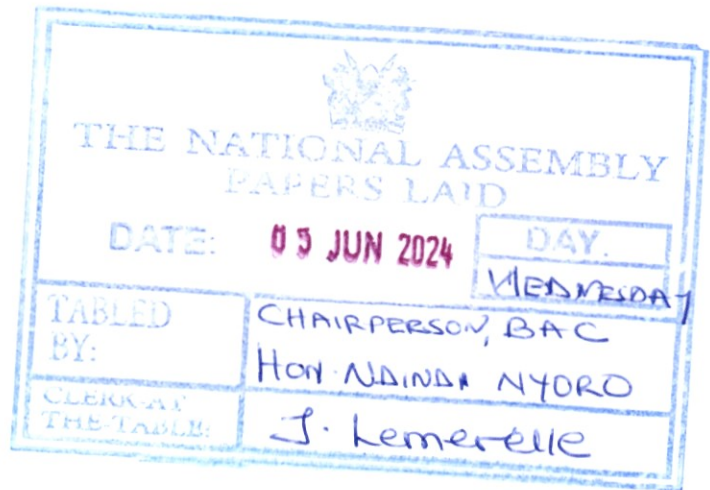 THE NATIONAL ASSEMBLY
PAPERS LAID
DATE: 05 JUN 2024
DAY.
WEDNESDAY
TABLED BY:
CHAIRPERSON, BAC
HON NDINDI NYORO
CLERK-AT THE-TABLE:
J. Lemerelle